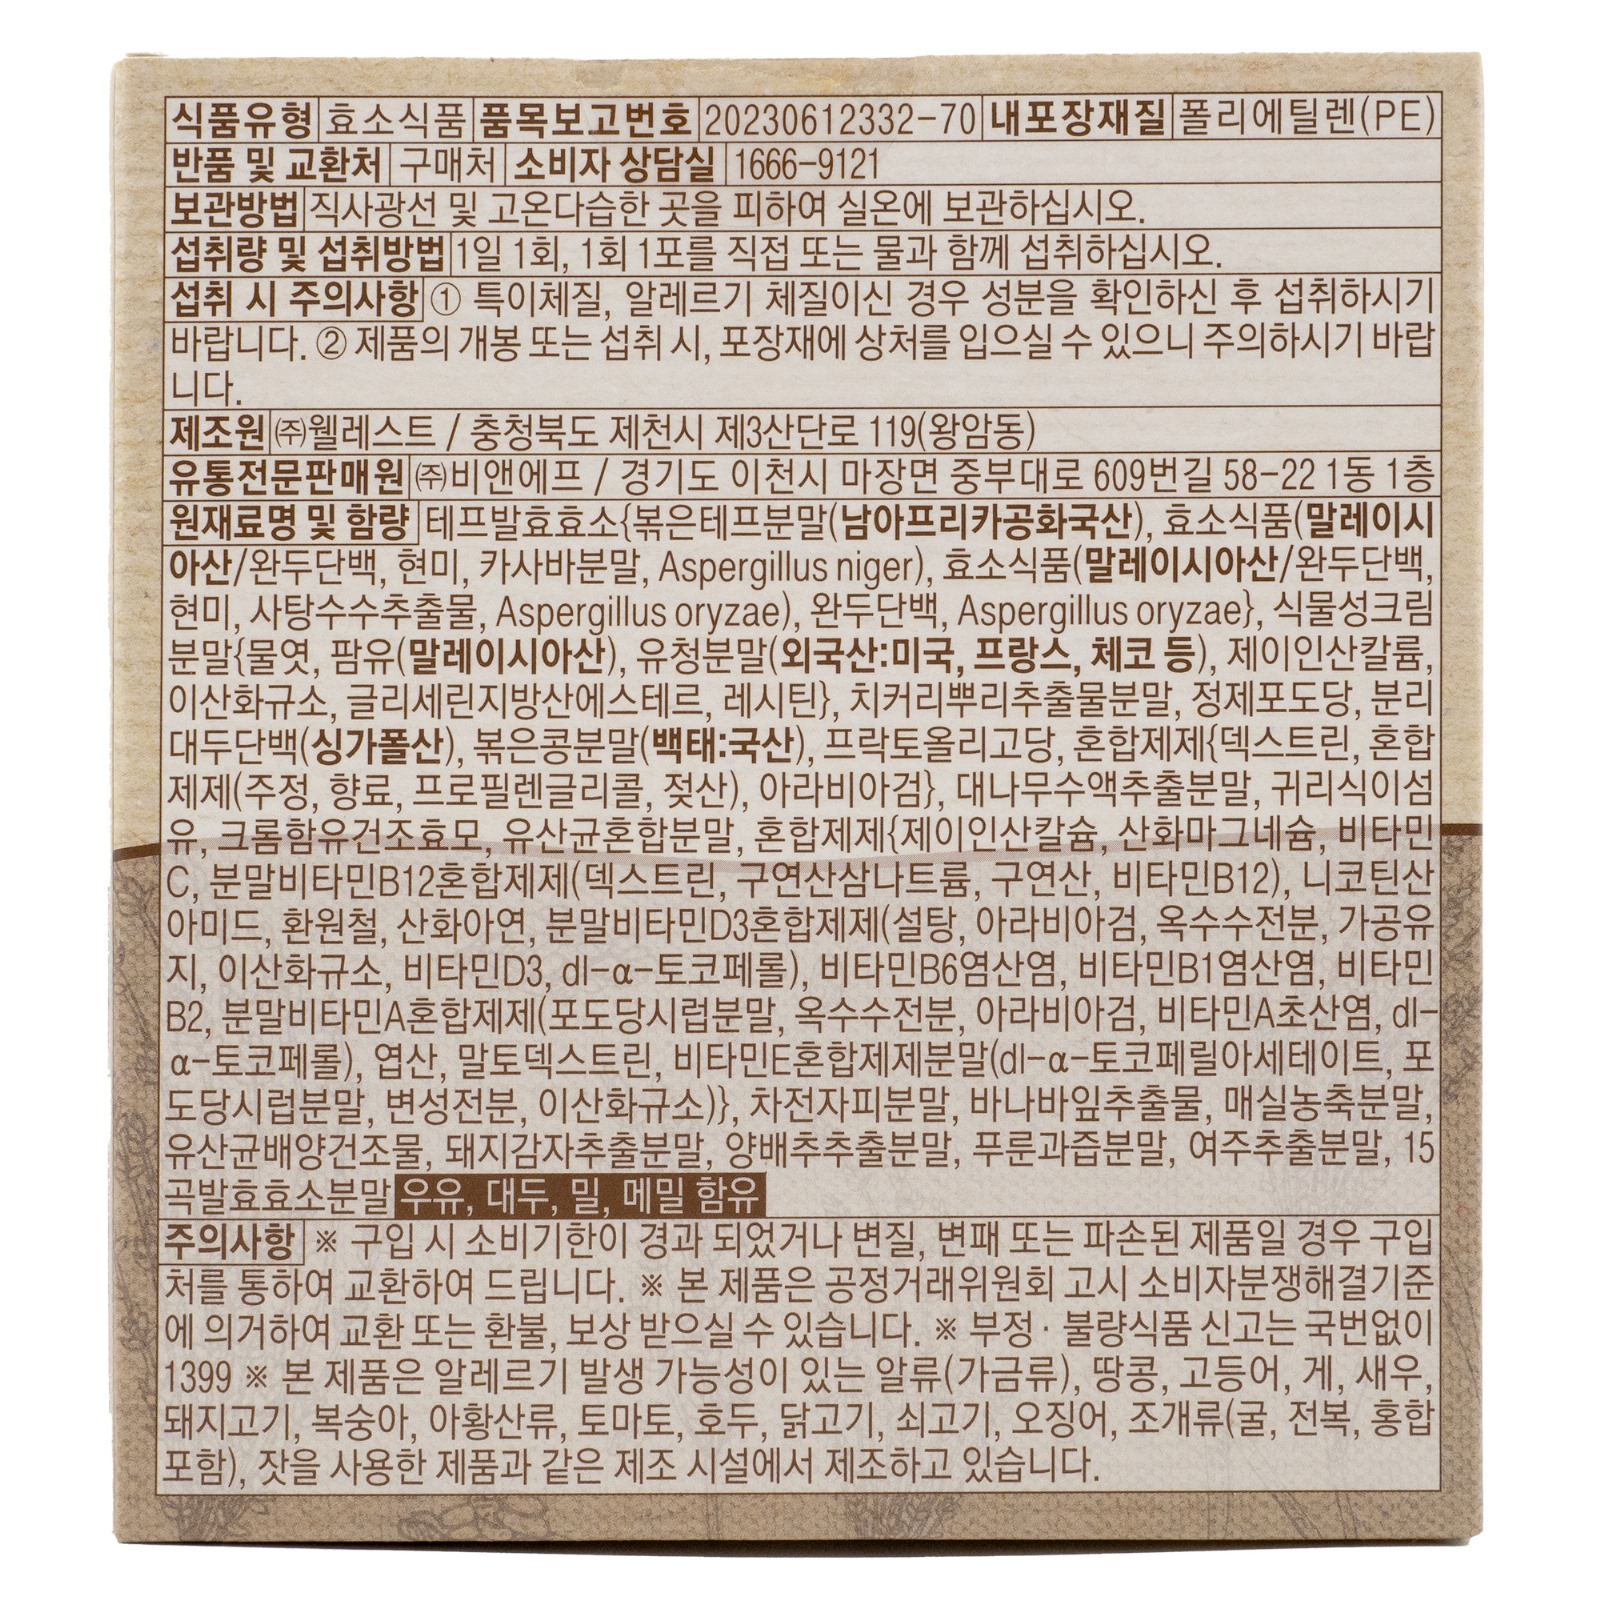 식품유형 효소식품 품목보고번호 20230612332-70 내포장재질 폴리에틸렌(PE)
반품 및 교환처 구매처 소비자 상담실 1666-9121
보관방법 직사광선 및 고온다습한 곳을 피하여 실온에 보관하십시오.
섭취량 및 섭취방법 1일 1회, 1회 1포를 직접 또는 물과 함께 섭취하십시오.
섭취 시 주의사항 ① 특이체질, 알레르기 체질이신 경우 성분을 확인하신 후 섭취하시기
바랍니다. ② 제품의 개봉 또는 섭취 시, 포장재에 상처를 입으실 수 있으니 주의하시기 바랍
니다.
제조원 ㈜웰레스트 / 충청북도 제천시 제3산단로 119(왕암동)
유통전문판매원 ㈜비앤에프 / 경기도 이천시 마장면 중부대로 609번길 58-22 1동 1층
원재료명 및 함량 테프발효효소{볶은테프분말(남아프리카공화국산), 효소식품(말레이시
아산/완두단백, 현미, 카사바분말, Aspergillus niger), 효소식품(말레이시아산/완두단백,
현미, 사탕수수추출물, Aspergillus oryzae), 완두단백, Aspergillus oryzae}, 식물성크림
분말{물엿, 팜유(말레이시아산), 유청분말(외국산:미국, 프랑스, 체코 등), 제이인산칼륨,
이산화규소, 글리세린지방산에스테르, 레시틴}, 치커리뿌리추출물분말, 정제포도당, 분리
대두단백(싱가폴산), 볶은콩분말(백태:국산), 프락토올리고당, 혼합제제{덱스트린, 혼합
제제(주정, 향료, 프로필렌글리콜, 젖산), 아라비아검}, 대나무수액추출분말, 귀리식이섬
유, 크롬함유건조효모, 유산균혼합분말, 혼합제제{제이인산칼슘, 산화마그네슘, 비타민
C, 분말비타민B12혼합제제(덱스트린, 구연산삼나트륨, 구연산, 비타민B12), 니코틴산
아미드, 환원철, 산화아연, 분말비타민D3혼합제제(설탕, 아라비아검, 옥수수전분, 가공유
지, 이산화규소, 비타민D3, dl-α-토코페롤), 비타민B6염산염, 비타민B1염산염, 비타민
B2, 분말비타민A혼합제제(포도당시럽분말, 옥수수전분, 아라비아검, 비타민A초산염, dl-
α-토코페롤), 엽산, 말토덱스트린, 비타민E혼합제제분말(dl-α-토코페릴아세테이트, 포
도당시럽분말, 변성전분, 이산화규소)}, 차전자피분말, 바나바잎추출물, 매실농축분말,
유산균배양건조물, 돼지감자추출분말, 양배추추출분말, 푸룬과즙분말, 여주추출분말, 15
곡발효효소분말 우유, 대두, 밀, 메밀 함유
주의사항 ※ 구입 시 소비기한이 경과 되었거나 변질, 변패 또는 파손된 제품일 경우 구입
처를 통하여 교환하여 드립니다. ※ 본 제품은 공정거래위원회 고시 소비자분쟁해결기준
에 의거하여 교환 또는 환불, 보상 받으실 수 있습니다. ※ 부정 · 불량식품 신고는 국번없이
1399 ※ 본 제품은 알레르기 발생 가능성이 있는 알류(가금류), 땅콩, 고등어, 게, 새우,
돼지고기, 복숭아, 아황산류, 토마토, 호두, 닭고기, 쇠고기, 오징어, 조개류(굴, 전복, 홍합
포함), 잣을 사용한 제품과 같은 제조 시설에서 제조하고 있습니다.